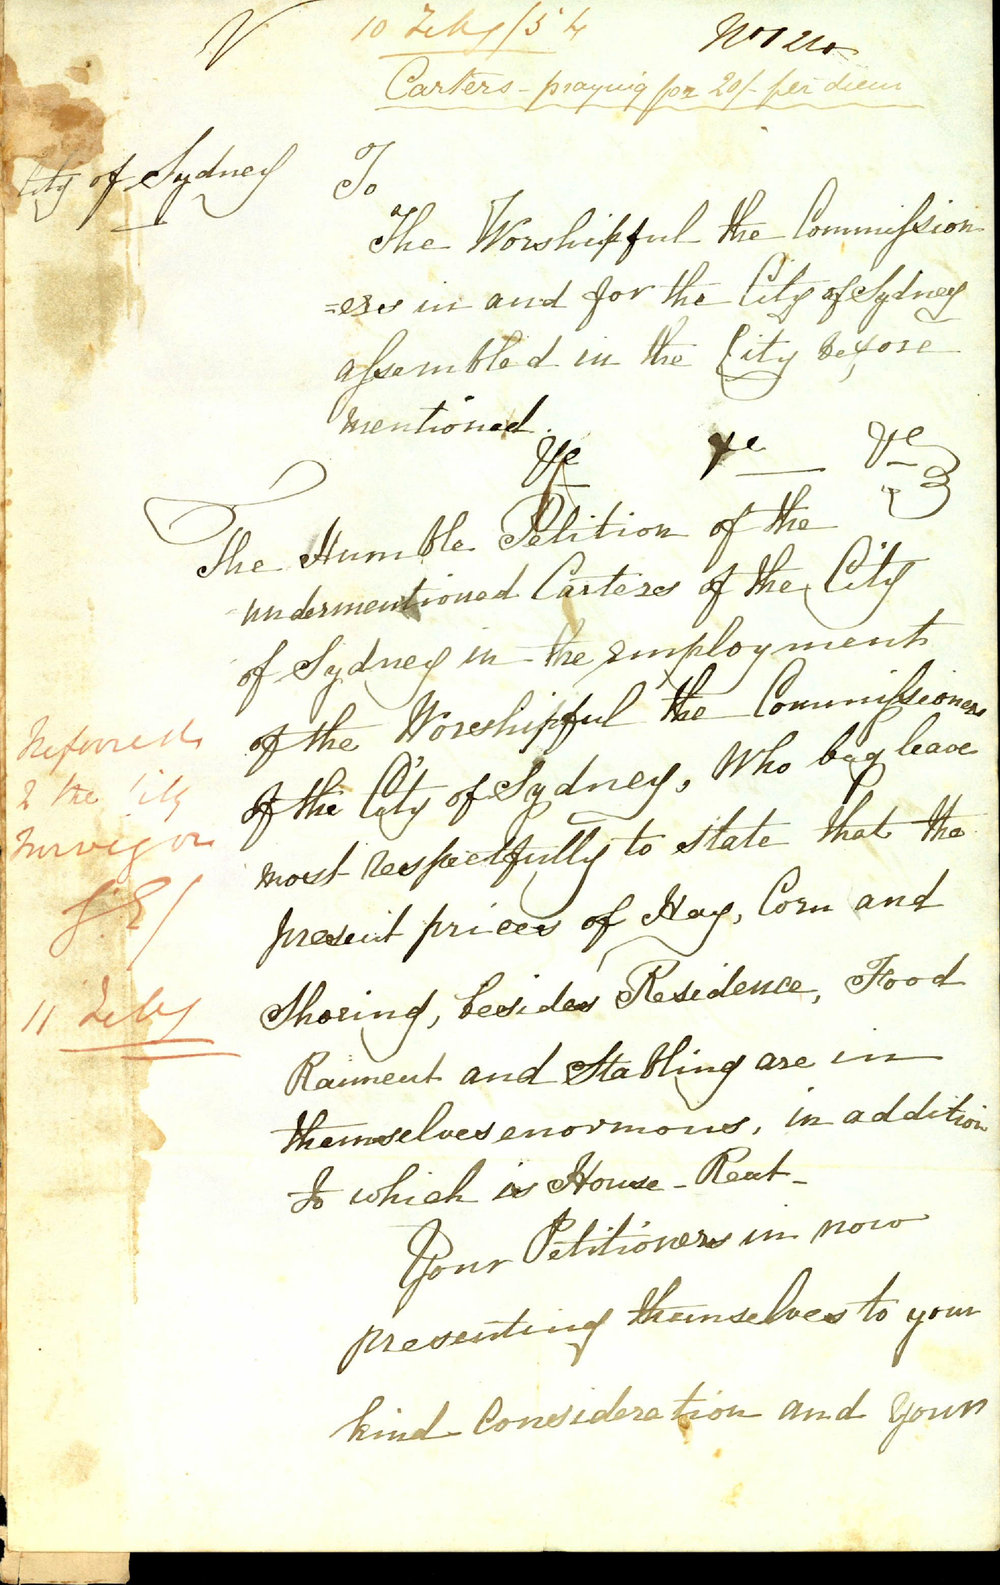 10 Feby /54
No 210
Carters - praying for 20/- per diem
City of Sydney
To
The Worshipful the Commission
=ers in and for the City of Sydney
assembled in the City before
mentioned.
&c &c &c
The Humble Petition of the
undermentioned Carters of the City
of Sydney in the employment
of the Worshipful the Commissioners
of the City of Sydney, Who beg leave
most respectfully to state that the
present prices of Hay, Corn and
Shoeing, besides Residence, Food
Raiment and Stabling are in
themselves enormous, in addition
to which is House - Rent -
Your Petitioners in now
presenting themselves to your
kind Consideration and Your
Referred
to the City
Surveyor
11 Feby